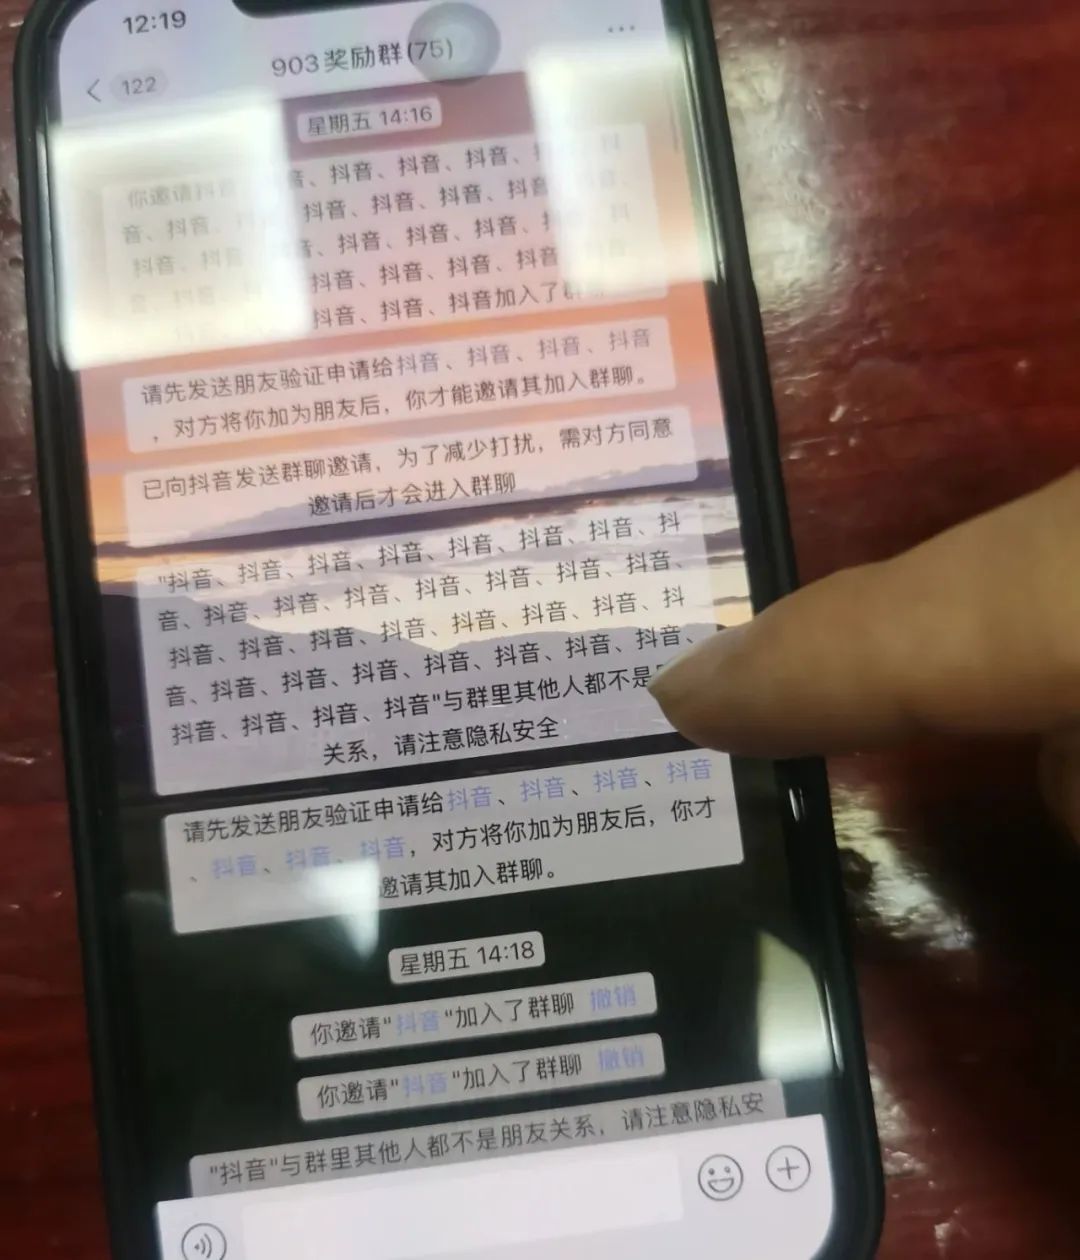 12:19
122
903奖励群(75)
星期五 14:16
你邀请抖音、抖音、抖音、抖音、
音、抖音、抖音、抖音、抖音、
抖音、抖音、抖音、抖音、抖音、
抖音、抖音、抖音、抖音
抖音、抖音、抖音加入了群
请先发送朋友验证申请给抖音、抖音、抖音、抖音
，对方将你加为朋友后，你才能邀请其加入群聊。
已向抖音发送群聊邀请，为了减少打扰，需对方同意
邀请后才会进入群聊
"抖音、抖音、抖音、抖音、抖音、抖音、抖音、抖
音、抖音、抖音、抖音、抖音、抖音、抖音、抖音、
抖音、抖音、抖音、抖音、抖音、抖音、抖音、抖
音、抖音、抖音、抖音、抖音、抖音、抖音、抖音、
抖音、抖音、抖音、抖音"与群里其他人都不是
关系，请注意隐私安全
请先发送朋友验证申请给抖音、抖音、抖音、抖音
、抖音、抖音、抖音，对方将你加为朋友后，你才
邀请其加入群聊。
星期五 14:18
你邀请"抖音"加入了群聊 撤销
你邀请"抖音"加入了群聊 撤销
"抖音"与群里其他人都不是朋友关系，请注意隐私安